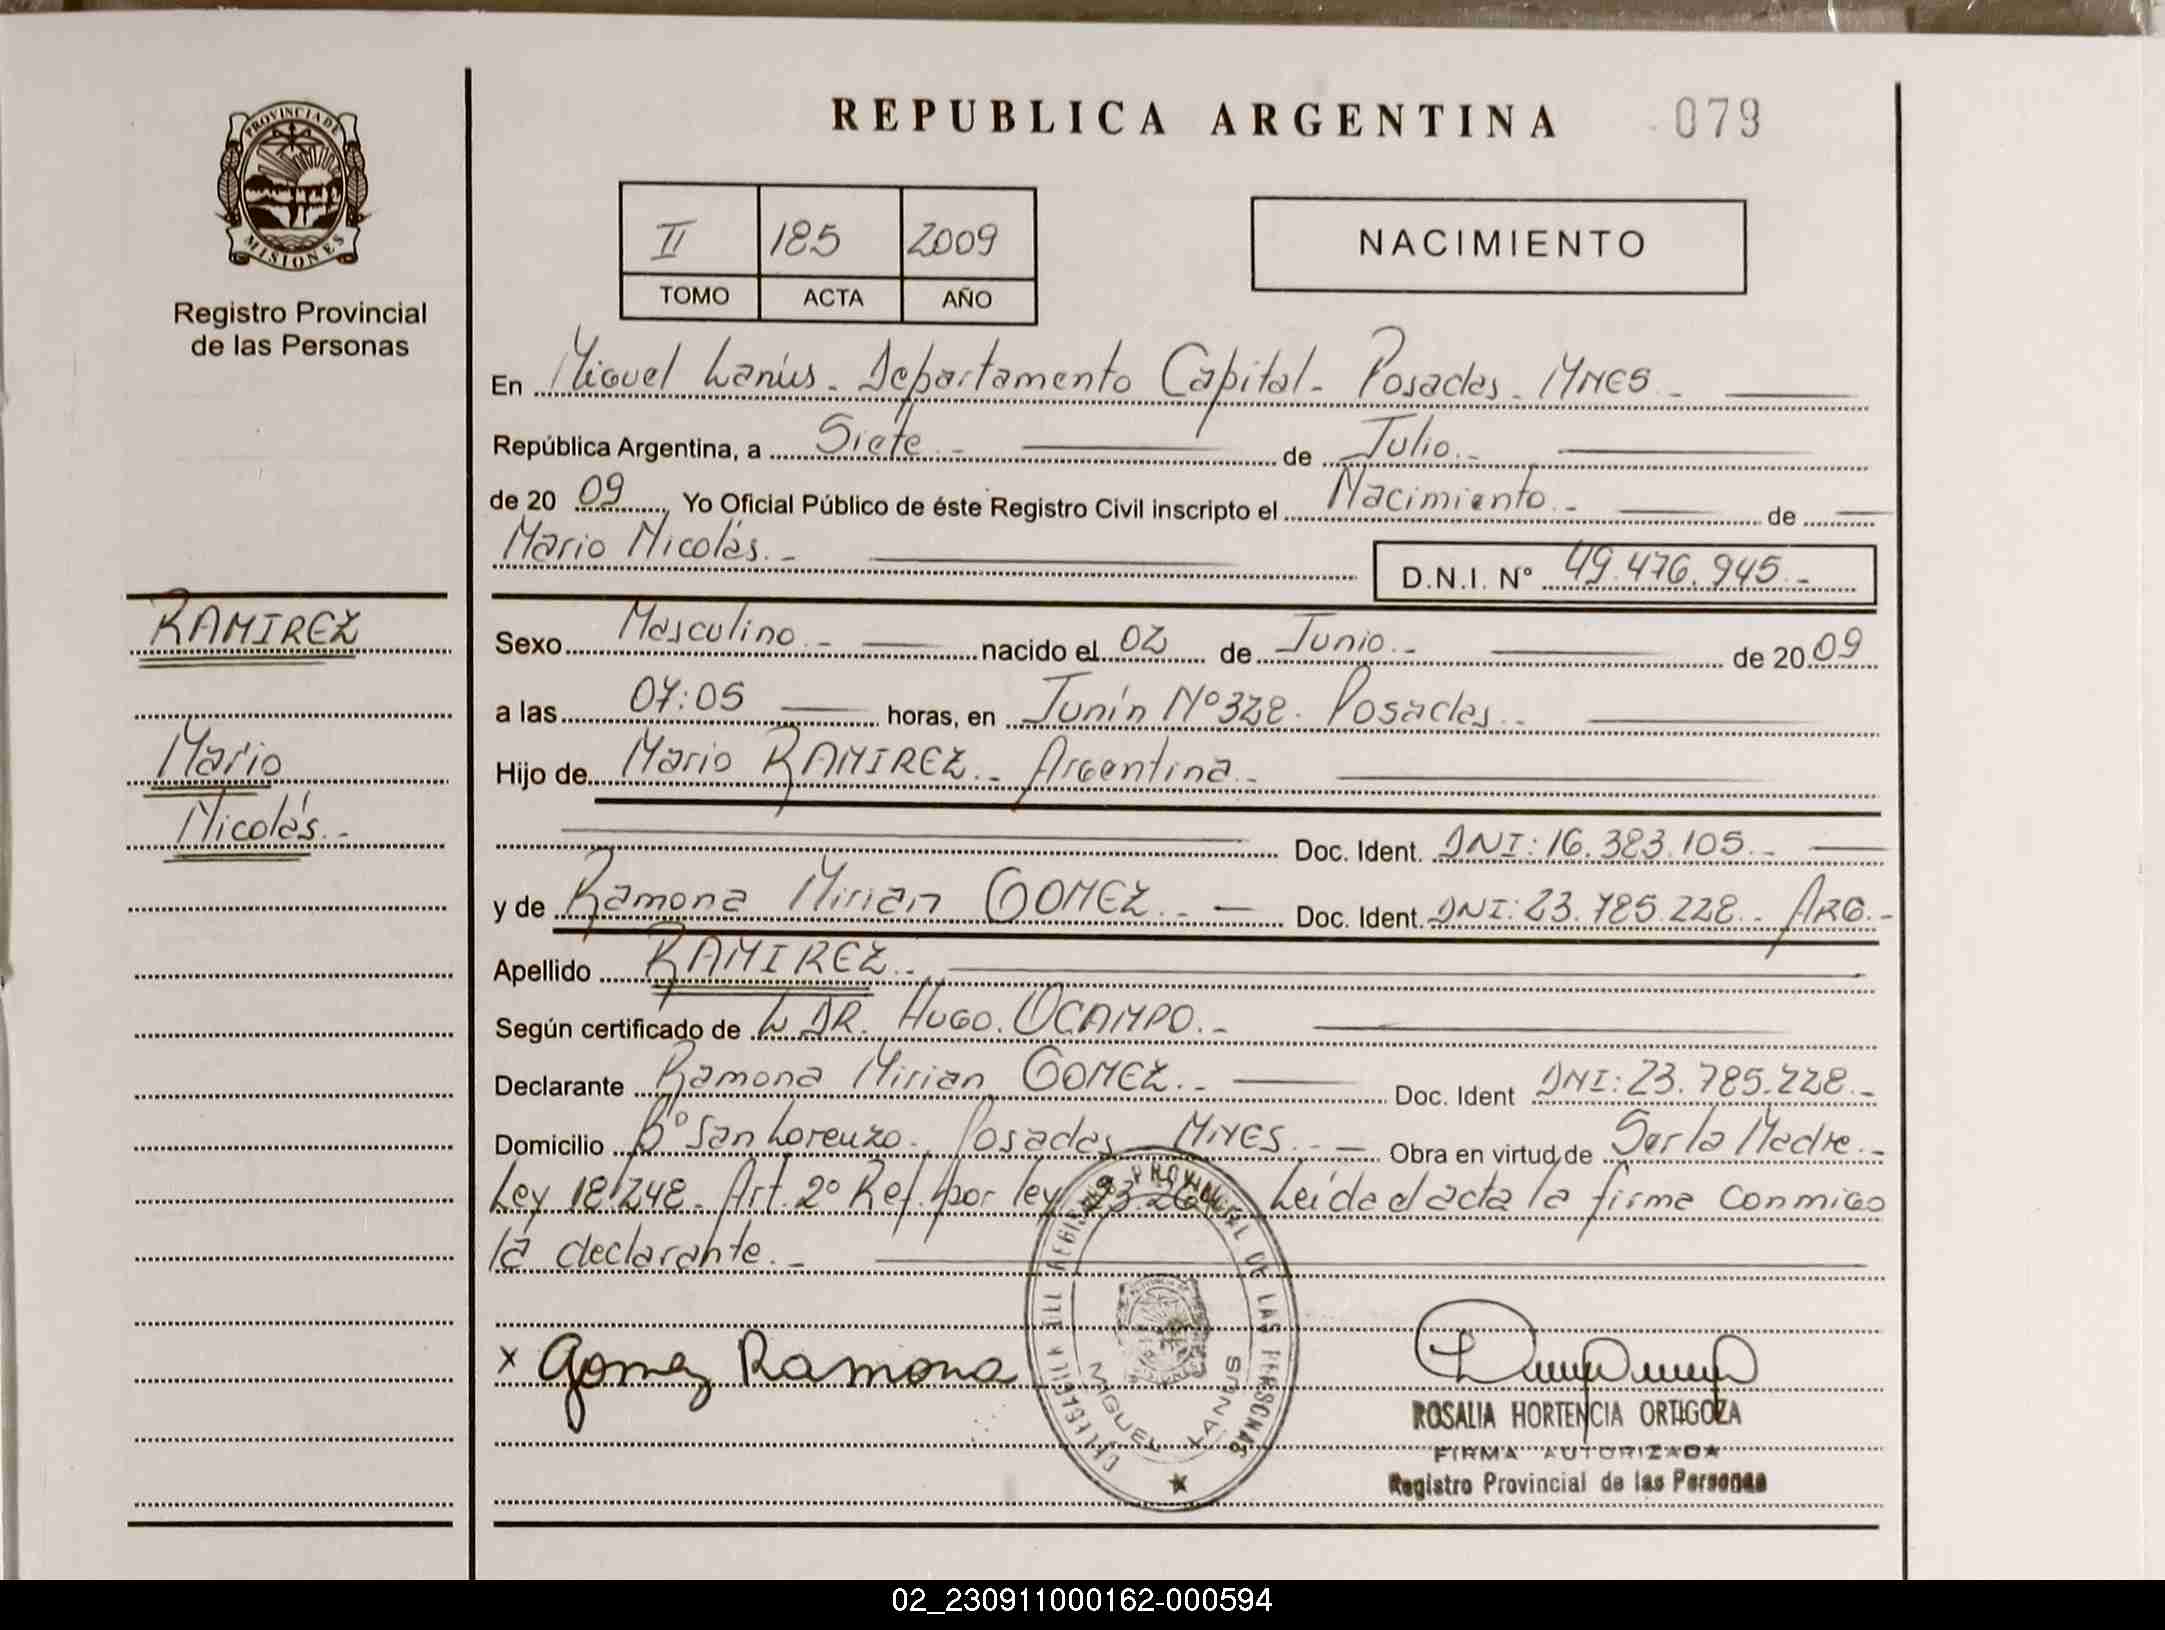 PROVINCIA DE
MISIONES
Registro Provincial
de las Personas
RAMIREZ
Mario
Nicolás.-
REPUBLICA ARGENTINA 079
II 185 2009
TOMO ACTA AÑO
NACIMIENTO
En Miguel Lanús - Departamento Capital - Posadas - MNES -
República Argentina, a Siete - de Julio -
de 20 09 Yo Oficial Público de éste Registro Civil inscripto el Nacimiento - de
Mario Nicolás.- D.N.I. Nº 49.476.945.-
Sexo Masculino.- nacido el 02 de Junio.- de 20 09
a las 07:05 horas, en Junín Nº 328. Posadas.-
Hijo de Mario RAMIREZ.- Argentina.-
Doc. Ident. DNI: 16.383.105.-
y de Ramona Mirian GOMEZ.- Doc. Ident. DNI: 23.785.228.- ARG.-
Apellido RAMIREZ.-
Según certificado de DR. HUGO. OCAMPO.-
Declarante Ramona Mirian GOMEZ.- Doc. Ident DNI: 23.785.228.-
Domicilio Bº San Lorenzo. Posadas MNES.- Obra en virtud de Ser la Madre.-
Ley 18.248. Art. 2º Ref. por ley Leída el acta la firma conmigo
la declarante.-
x Gomez Ramona
REGISTRO PROVINCIAL DE LAS PERSONAS
MIGUEL LANUS
ROSALIA HORTENCIA ORTIGOZA
FIRMA AUTORIZADA
Registro Provincial de las Personas
02_230911000162-000594